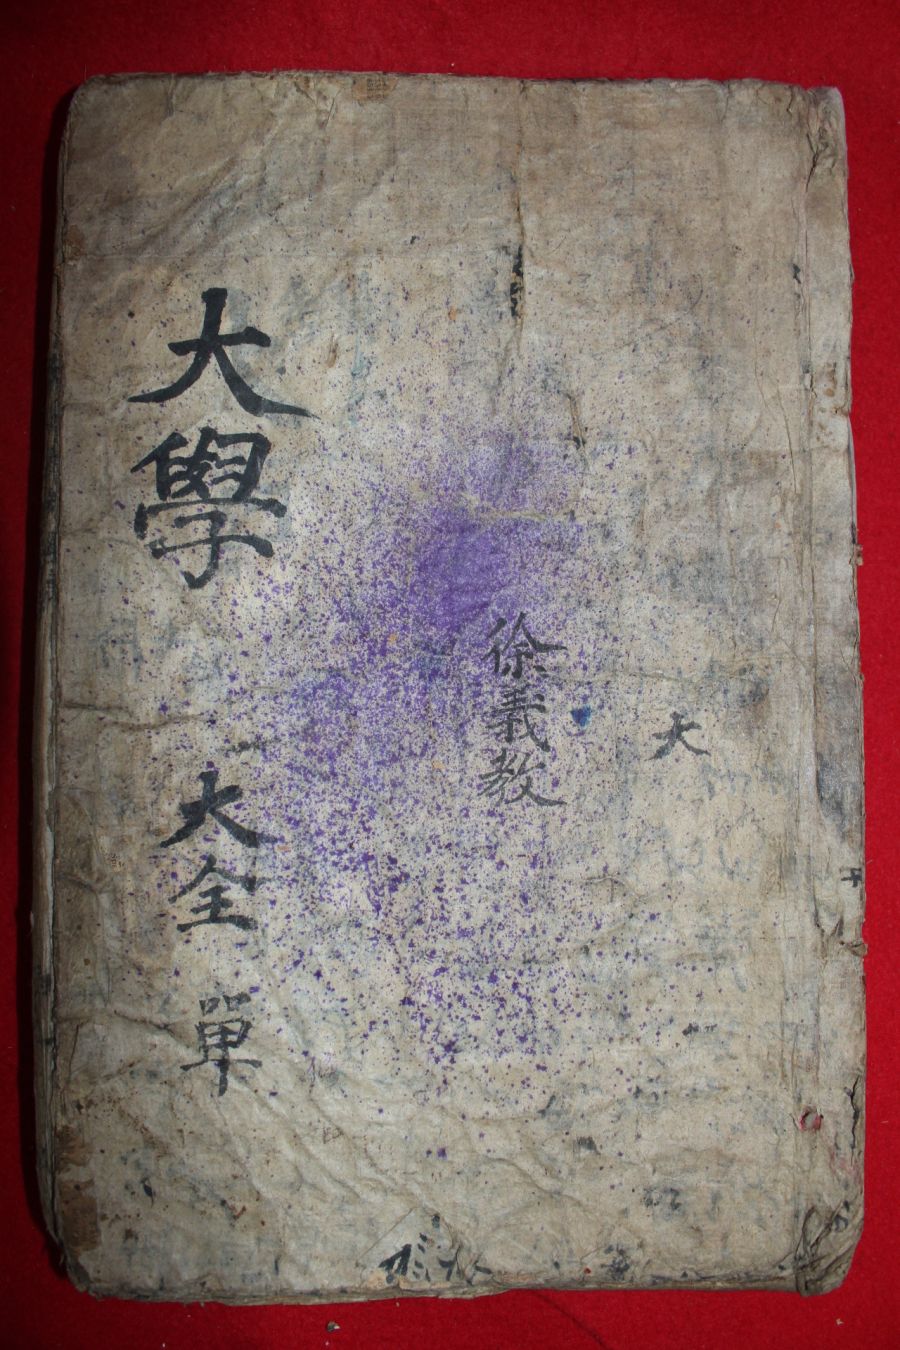 大
徐義教
大學 大全 單